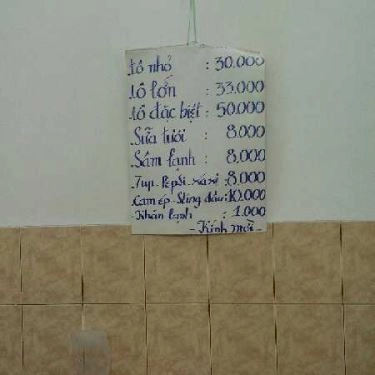 tô nhỏ : 30.000
tô lớn : 33.000
tô đặc biệt : 50.000
Sữa tươi : 8.000
Sâm lạnh : 8.000
7up - Pepsi - xá xị : 8.000
Cam ép - Sting dâu : 10.000
- Khăn lạnh : 1.000
- Kính mời -